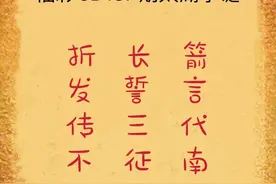 折 长 箭
发 誓 言
传 三 代
不 征 南